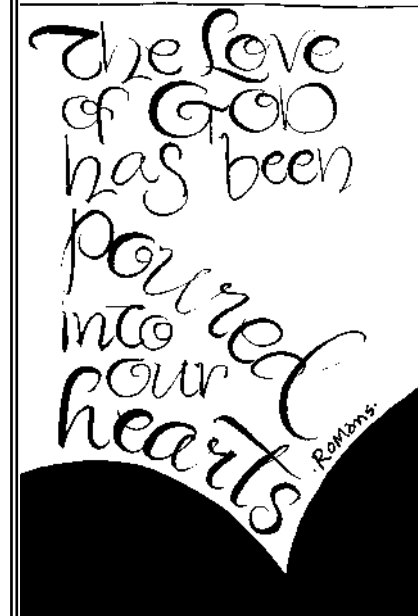 The Love
of GOD
has been
poured
into
our
hearts
.ROMans.